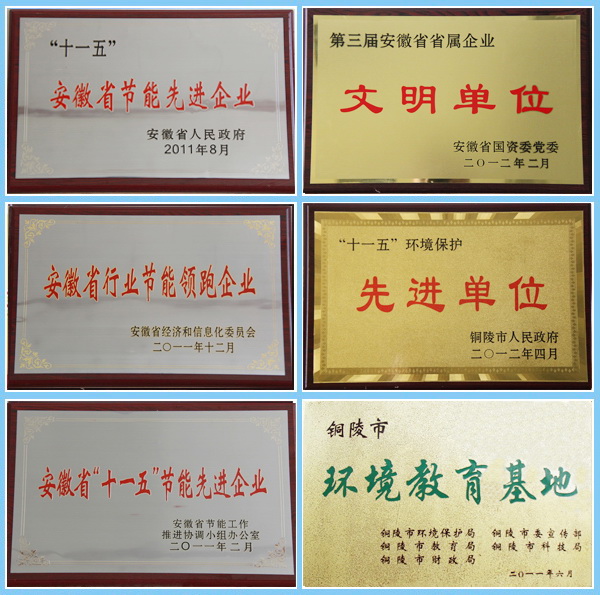 “十一五”
安徽省节能先进企业
安徽省人民政府
2011年8月
第三届安徽省省属企业
文明单位
安徽省国资委党委
二〇一二年二月
安徽省行业节能领跑企业
安徽省经济和信息化委员会
二〇一一年十二月
“十一五”环境保护
先进单位
铜陵市人民政府
二〇一二年四月
安徽省“十一五”节能先进企业
安徽省节能工作
推进协调小组办公室
二〇一一年二月
铜陵市
环境教育基地
铜陵市环境保护局 铜陵市委宣传部
铜陵市教育局 铜陵市科技局
铜陵市财政局
二〇一一年六月